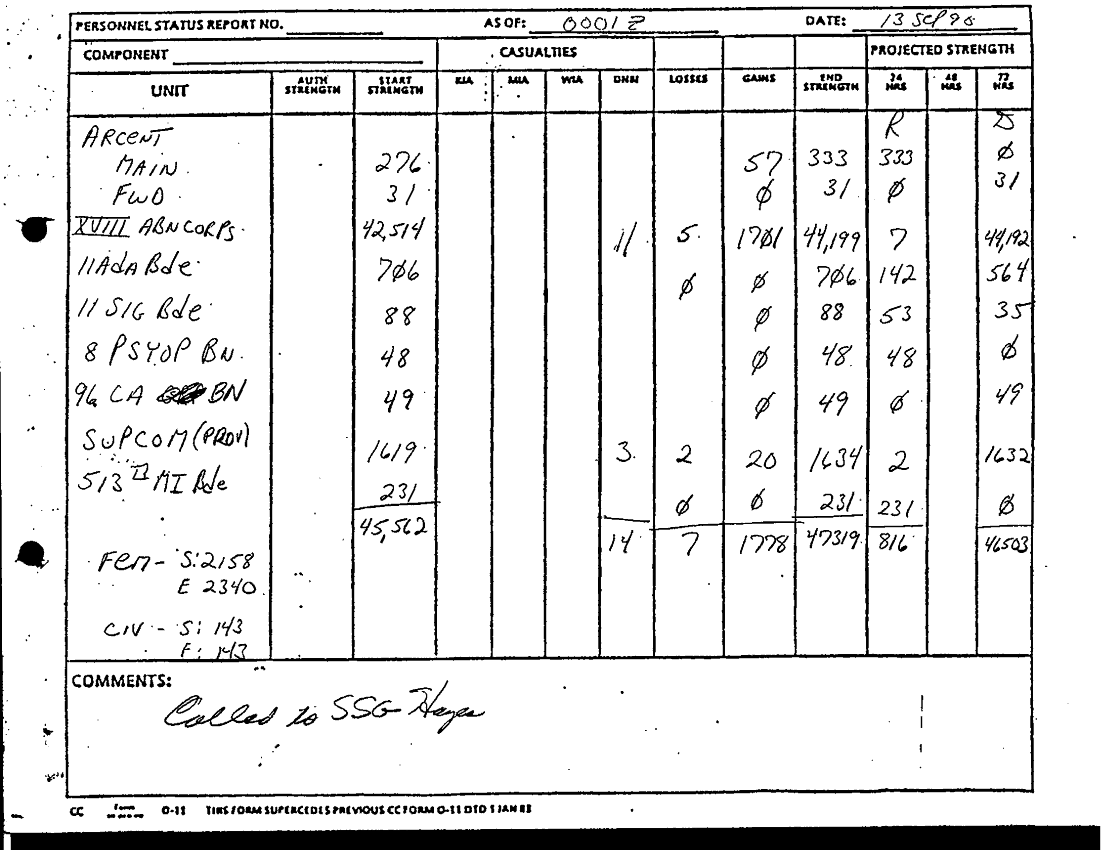 PERSONNEL STATUS REPORT NO. AS OF: 0001Z DATE: 13 SEP 90
COMPONENT CASUALTIES PROJECTED STRENGTH
UNIT AUTH STRENGTH START STRENGTH KIA MIA WIA DNBI LOSSES GAINS END STRENGTH 24 HRS 48 HRS 72 HRS
ARCENT R D
MAIN 276 57 333 333 Ø
FWD 31 Ø 31 Ø 31
XVIII ABN CORPS 42,514 11 5 17Ø1 44,199 7 44,192
11 AdA Bde 7Ø6 Ø Ø 7Ø6 142 564
11 SIG Bde 88 Ø 88 53 35
8 PSYOP BN 48 Ø 48 48 Ø
96 CA BN 49 Ø 49 Ø 49
SUPCOM (PROV) 1619 3 2 20 1634 2 1632
513 MI Bde 231 Ø Ø 231 231 Ø
45,562 14 7 1778 47319 816 46503
Fem - S: 2158
E 2340
CIV - S: 143
E: 143
COMMENTS:
Called to SSG Hayes
CC Form 0-11 THIS FORM SUPERCEDES PREVIOUS CC FORM O-11 DTD 1 JAN 83